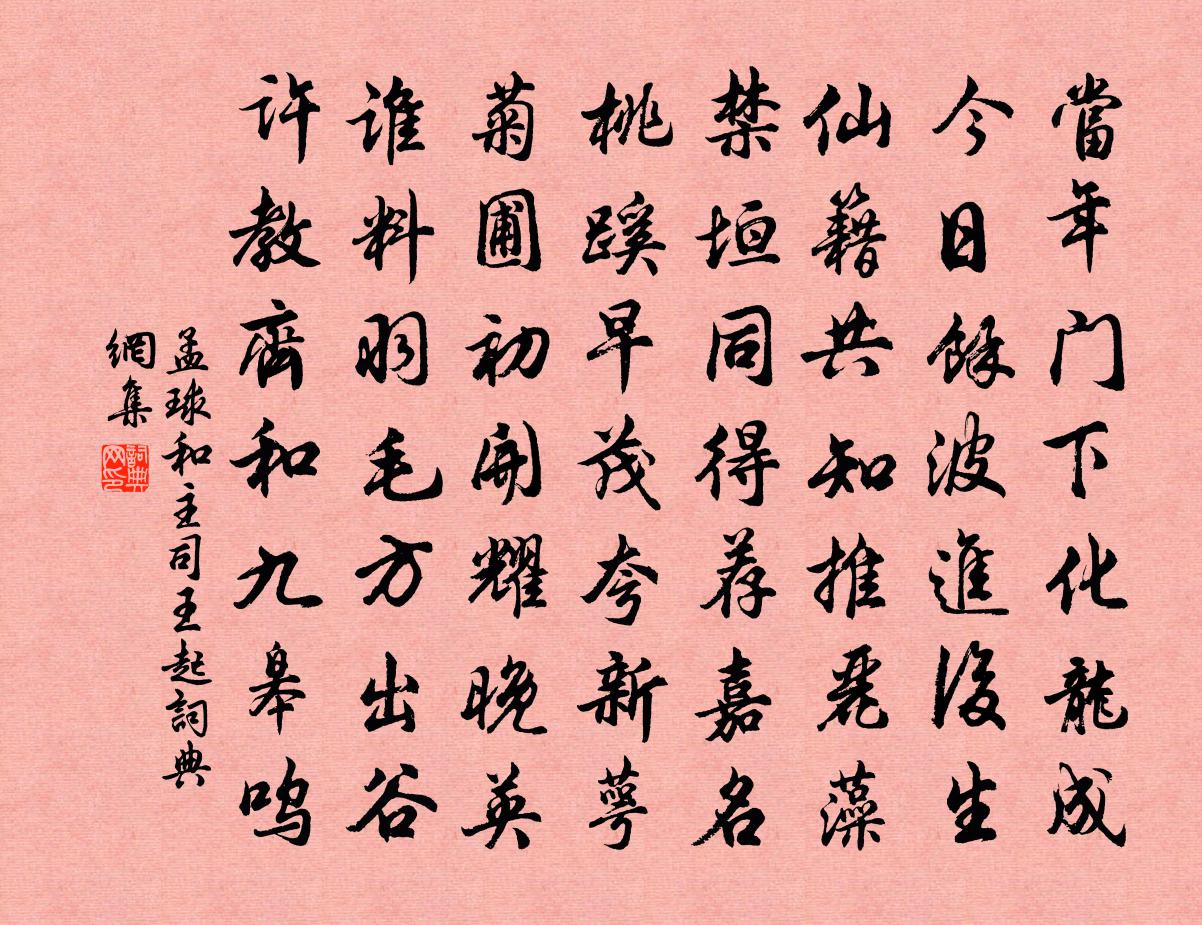 當年门下化龍成
今日餘波進後生
仙籍共知推麗藻
禁垣同得荐嘉名
桃蹊早茂夸新萼
菊圃初開耀晚英
谁料羽毛方出谷
许教齊和九皋鸣
孟球和主司王起詞典
網集
詞典
网印